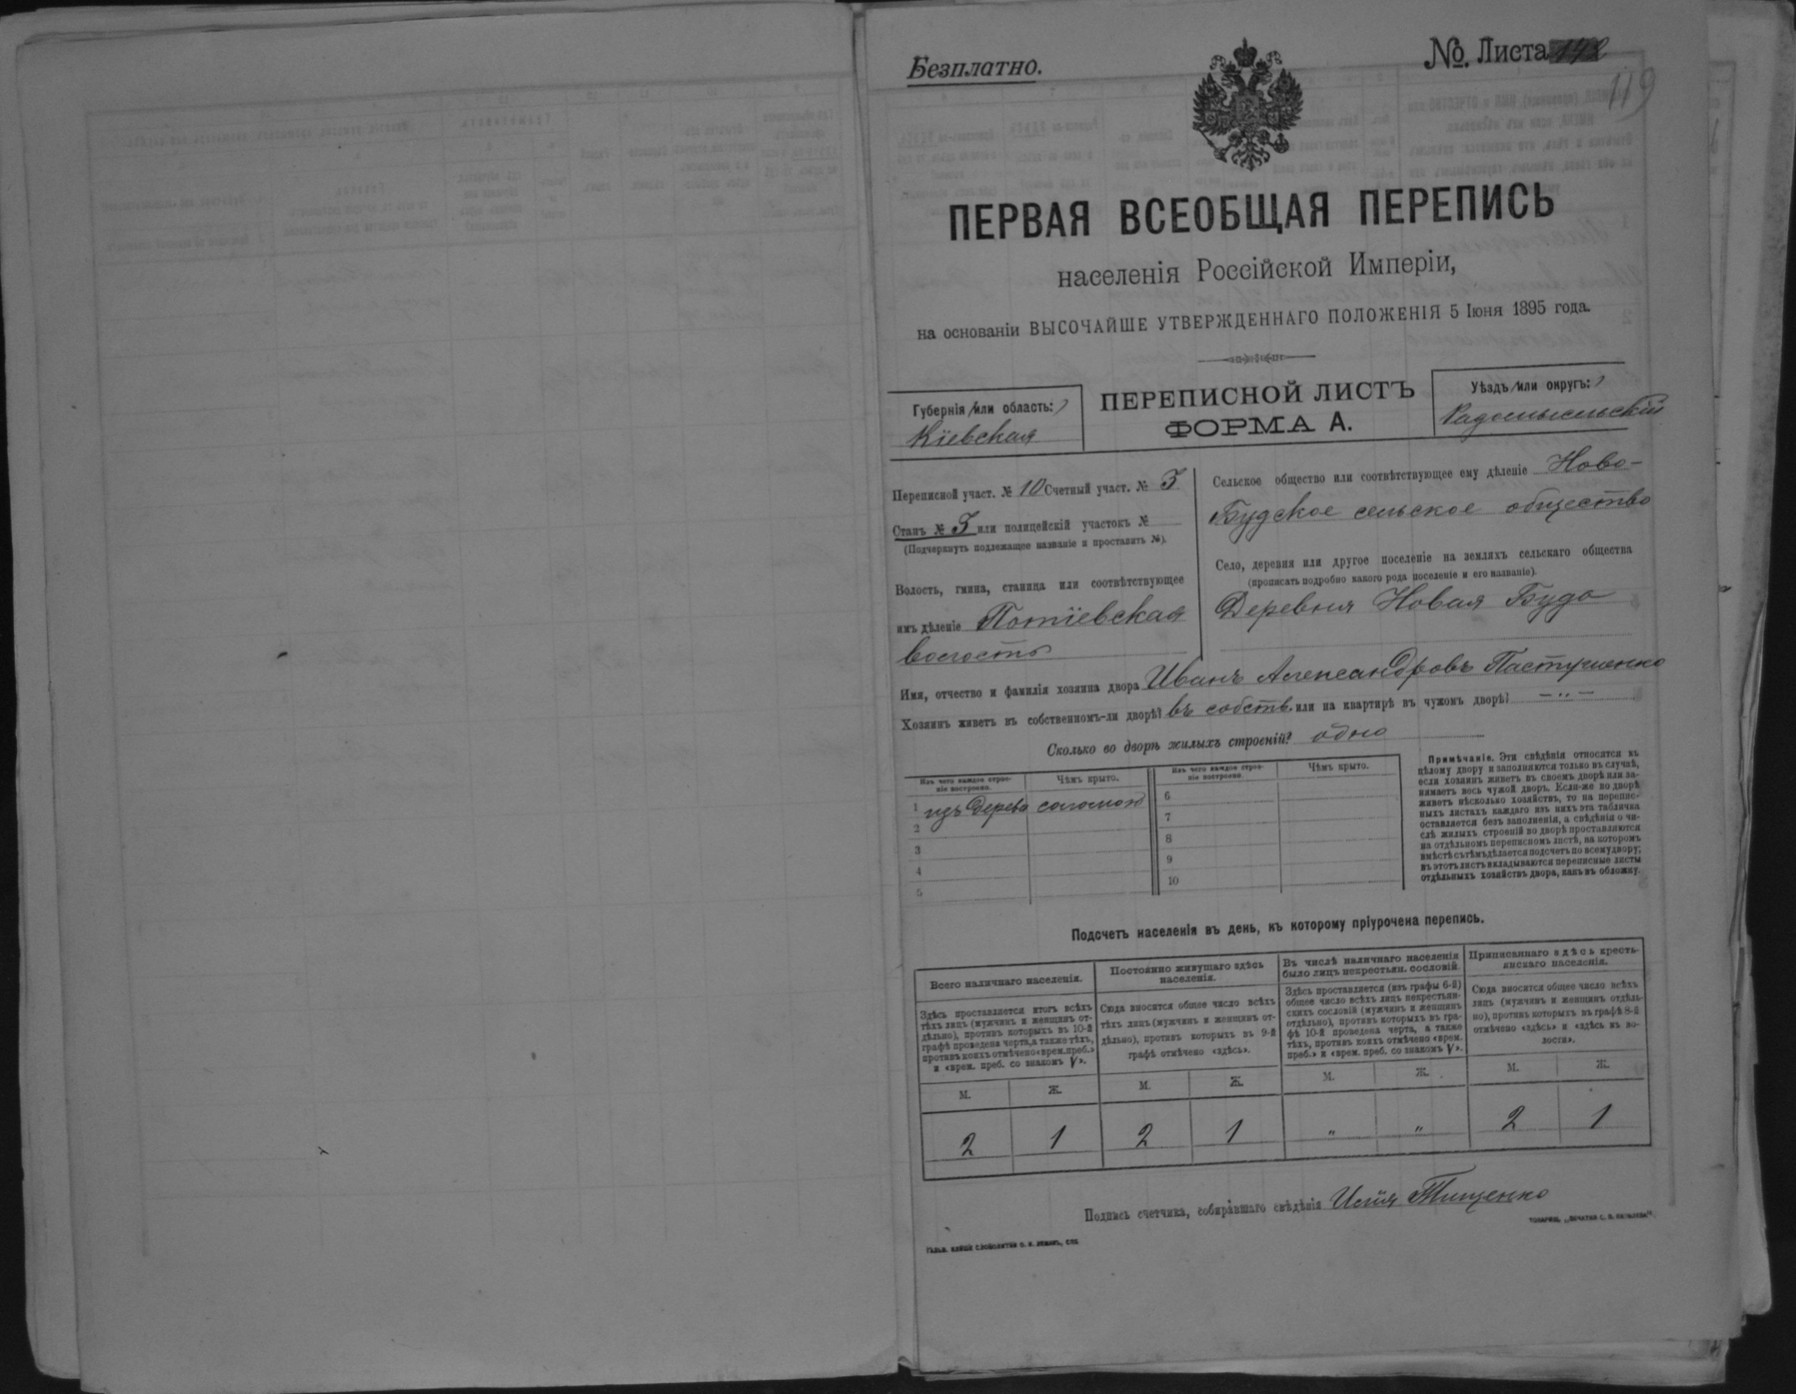 Безплатно.
№. Листа
119
ПЕРВАЯ ВСЕОБЩАЯ ПЕРЕПИСЬ
населенія Россійской Имперіи,
на основаніи ВЫСОЧАЙШЕ УТВЕРЖДЕННАГО ПОЛОЖЕНІЯ 5 Іюня 1895 года.
Губернія /или область:)
Кіевская
ПЕРЕПИСНОЙ ЛИСТЪ
ФОРМА А.
Уѣздъ /или округъ:)
Радомысльскій
Переписной участ. № 10 Счетный участ. № 3
Станъ № 3 или полицейскій участокъ №
(Подчеркнуть подлежащее названіе и проставить №).
Волость, гмина, станица или соотвѣтствующее
имъ дѣленіе Потіевская
волость
Сельское общество или соотвѣтствующее ему дѣленіе Ново-
Будское сельское общество
Село, деревня или другое поселеніе на земляхъ сельскаго общества
(прописать подробно какого рода поселеніе и его названіе).
Деревня Новая Буда
Имя, отчество и фамилія хозяина двора Иванъ Александровъ Пастушенко
Хозяинъ живетъ въ собственномъ-ли дворѣ? въ собств. или на квартирѣ въ чужомъ дворѣ? — „ —
Сколько во дворѣ жилыхъ строеній? одно
Изъ чего каждое строе-
ніе построено.
Чѣмъ крыто.
Изъ чего каждое строе-
ніе построено.
Чѣмъ крыто.
1 изъ дерева соломою
2
3
4
5
6
7
8
9
10
Примѣчаніе. Эти свѣдѣнія относятся къ
цѣлому двору и заполняются только въ случаѣ,
если хозяинъ живетъ въ своемъ дворѣ или за-
нимаетъ весь чужой дворъ. Если-же во дворѣ
живетъ нѣсколько хозяйствъ, то на перепис-
ныхъ листахъ каждаго изъ нихъ эта табличка
оставляется безъ заполненія, а свѣдѣнія о чи-
слѣ жилыхъ строеній во дворѣ проставляются
на отдѣльномъ переписномъ листѣ, на которомъ
вмѣстѣ съ тѣмъ дѣлается подсчетъ по всему двору;
въ этотъ листъ вкладываются переписные листы
отдѣльныхъ хозяйствъ двора, какъ въ обложку.
Подсчетъ населенія въ день, къ которому пріурочена перепись.
Всего наличнаго населенія.
Здѣсь проставляется итогъ всѣхъ
тѣхъ лицъ (мужчинъ и женщинъ от-
дѣльно), противъ которыхъ въ 10-й
графѣ проведена черта, а также тѣхъ,
противъ коихъ отмѣчено «врем. преб.»
и «врем. преб. со знакомъ V».
Постоянно живущаго здѣсь
населенія.
Сюда вносится общее число всѣхъ
тѣхъ лицъ (мужчинъ и женщинъ от-
дѣльно), противъ которыхъ въ 9-й
графѣ отмѣчено «здѣсь».
Въ числѣ наличнаго населенія
было лицъ некрестьян. сословій.
Здѣсь проставляется (изъ графы 6-й)
общее число всѣхъ лицъ некрестьян-
скихъ сословій (мужчинъ и женщинъ
отдѣльно), противъ которыхъ въ гра-
фѣ 10-й проведена черта, а также
тѣхъ, противъ коихъ отмѣчено «врем.
преб.» и «врем. преб. со знакомъ V».
Приписаннаго здѣсь кресть-
янскаго населенія.
Сюда вносится общее число всѣхъ
лицъ (мужчинъ и женщинъ отдѣль-
но), противъ которыхъ въ графѣ 8-й
отмѣчено «здѣсь» и «здѣсь въ во-
лости».
М. Ж. М. Ж. М. Ж. М. Ж.
2 1 2 1 „ „ 2 1
Подпись счетчика, собиравшаго свѣдѣнія Тищенко